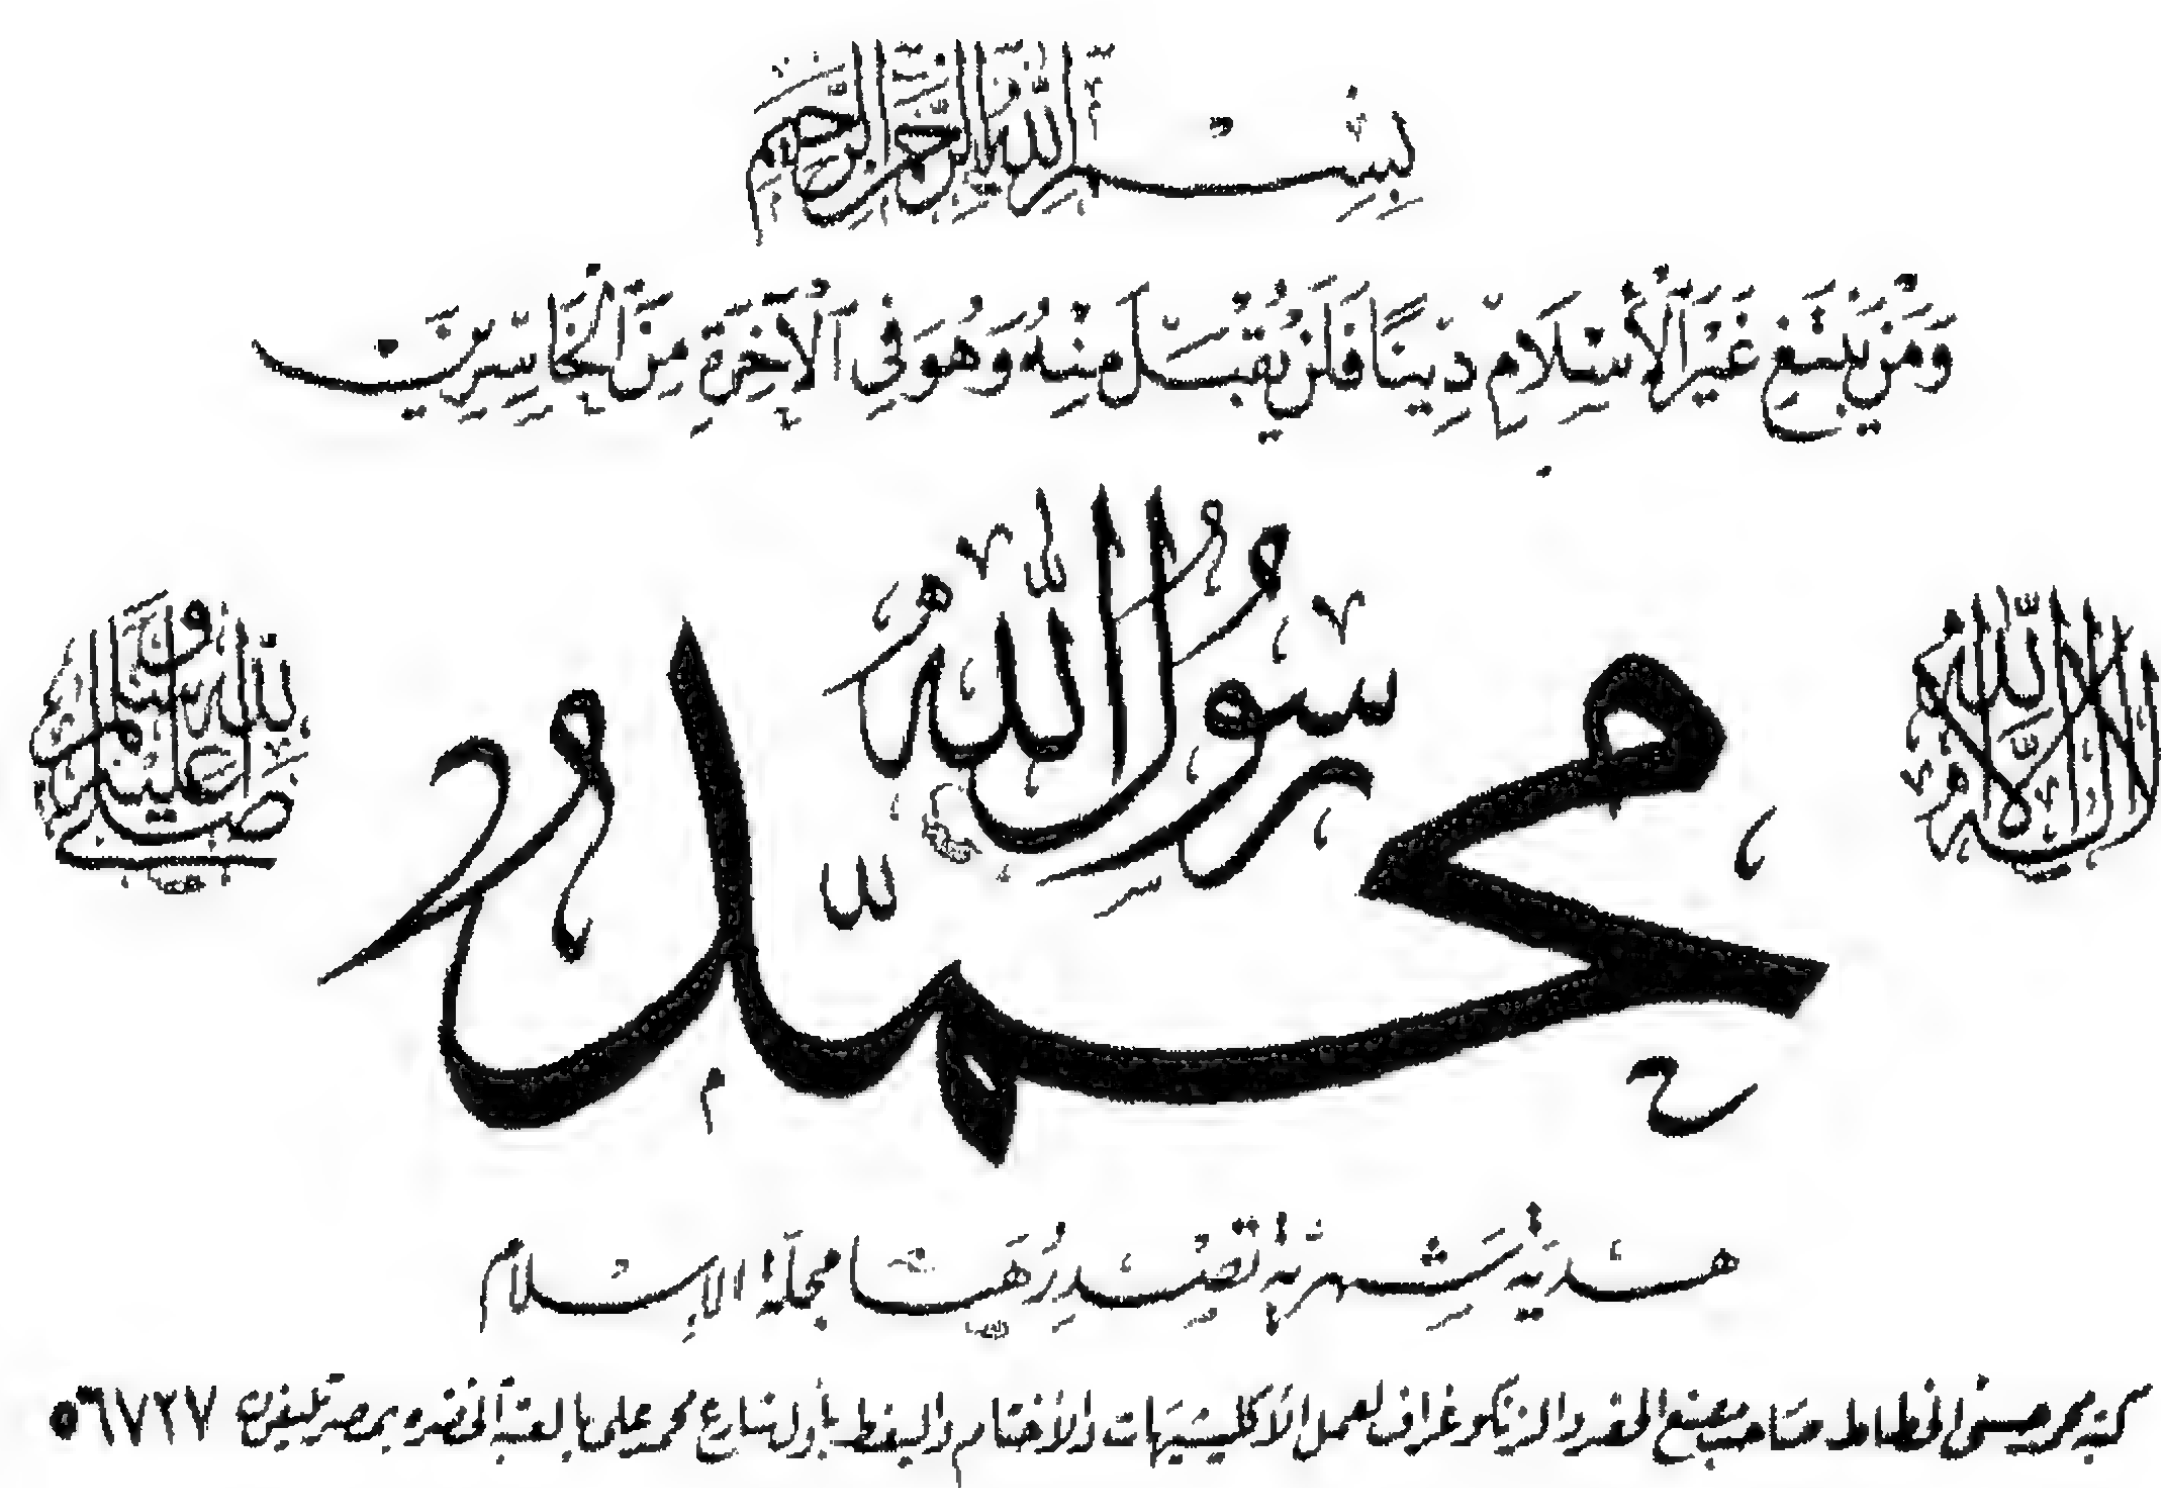 بِسْمِ اللهِ الرَّحْمٰنِ الرَّحِيمِ
وَمَنْ يَبْتَغِ غَيْرَ الْإِسْلَامِ دِينًا فَلَنْ يُقْبَلَ مِنْهُ وَهُوَ فِي الْآخِرَةِ مِنَ الْخَاسِرِينَ
لا إله إلا الله
محمد رسول الله
صلى الله عليه وسلم
هدية شهرية تصدرها مجلة الإسلام
كتبه محمد حسنى الخطاط صاحب مصنع الحفر والزنكوغراف لعمل الأكليشيهات والأختام واليفط بأول شارع محمد على بالعتبة الخضرة بمصر تليفون ٥٦٧٢٧